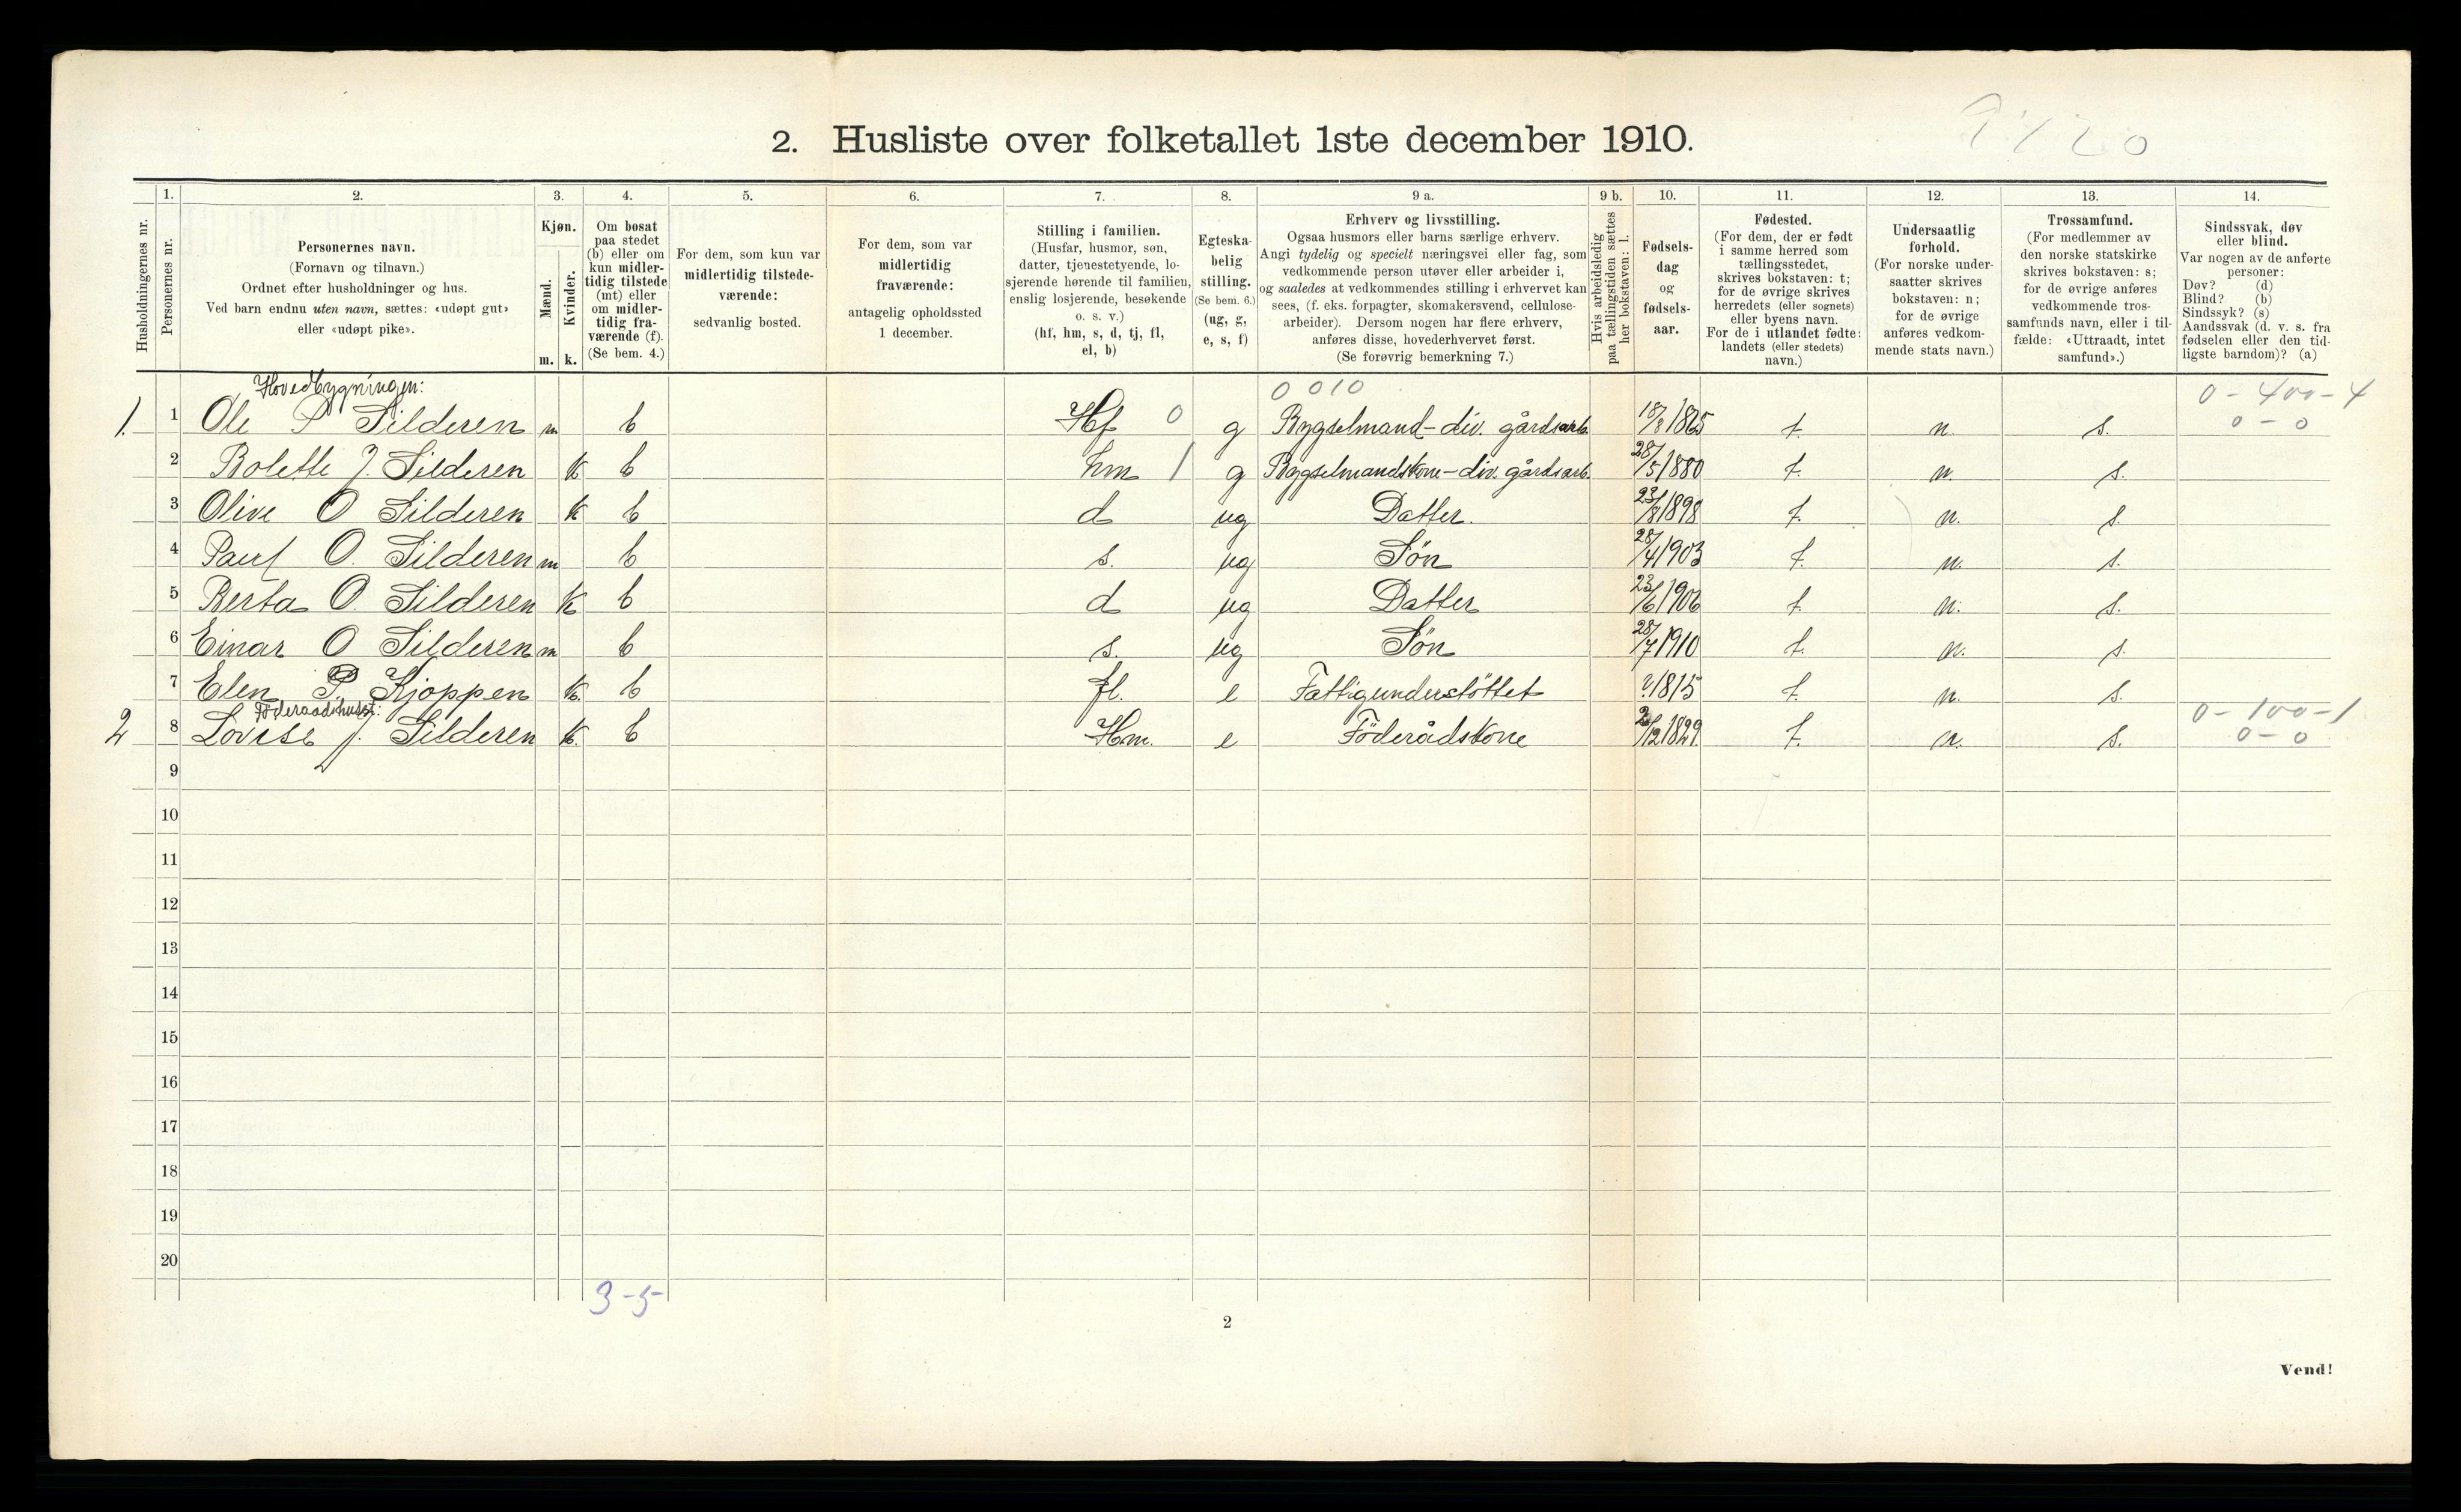 2. Husliste over folketallet 1ste december 1910.
Husholdningernes nr.
1.
Personernes nr.
2.
Personernes navn.
(Fornavn og tilnavn.)
Ordnet efter husholdninger og hus.
Ved barn endnu uten navn, sættes: «udøpt gut»
eller «udøpt pike».
3.
Kjøn.
Mænd.
Kvinder.
m. k.
4.
Om bosat
paa stedet
(b) eller om
kun midler-
tidig tilstede
(mt) eller
om midler-
tidig fra-
værende (f).
(Se bem. 4.)
5.
For dem, som kun var
midlertidig tilstede-
værende:
sedvanlig bosted.
6.
For dem, som var
midlertidig
fraværende:
antagelig opholdssted
1 december.
7.
Stilling i familien.
(Husfar, husmor, søn,
datter, tjenestetyende, lo-
sjerende hørende til familien,
enslig losjerende, besøkende
o. s. v.)
(hf, hm, s, d, tj, fl,
el, b)
8.
Egteska-
belig
stilling.
(Se bem. 6.)
(ug, g,
e, s, f)
9 a.
Erhverv og livsstilling.
Ogsaa husmors eller barns særlige erhverv.
Angi tydelig og specielt næringsvei eller fag, som
vedkommende person utøver eller arbeider i,
og saaledes at vedkommendes stilling i erhvervet kan
sees, (f. eks. forpagter, skomakersvend, cellulose-
arbeider). Dersom nogen har flere erhverv,
anføres disse, hovederhvervet først.
(Se forøvrig bemerkning 7.)
9 b.
Hvis arbeidsledig
paa tællingstiden sættes
her bokstaven: l.
10.
Fødsels-
dag
og
fødsels-
aar.
11.
Fødested.
(For dem, der er født
i samme herred som
tællingsstedet,
skrives bokstaven: t;
for de øvrige skrives
herredets (eller sognets)
eller byens navn.
For de i utlandet fødte:
landets (eller stedets)
navn.)
12.
Undersaatlig
forhold.
(For norske under-
saatter skrives
bokstaven: n;
for de øvrige
anføres vedkom-
mende stats navn.)
13.
Trossamfund.
(For medlemmer av
den norske statskirke
skrives bokstaven: s;
for de øvrige anføres
vedkommende tros-
samfunds navn, eller i til-
fælde: «Uttraadt, intet
samfund».)
14.
Sindssvak, døv
eller blind.
Var nogen av de anførte
personer:
Døv? (d)
Blind? (b)
Sindssyk? (s)
Aandssvak (d. v. s. fra
fødselen eller den tid-
ligste barndom)? (a)
Hovedbygningen:
0 010
0 - 400 - 4
1. 1 Ole P Silderen m b Hf 0 g Bygselmand - div. gårdsarb. 18/8 1865 t. n. s. 0 - 0
2 Bolette J. Silderen k b hm 1 g Bygselmandskone - div. gårdsarb. 28/5 1880 t. n. s.
3 Olive O Silderen k b d ug Datter. 23/8 1898 t. n. s.
4 Paul O. Silderen m b s. ug Søn 28/4 1903 t. n. s.
5 Berta O. Silderen k b d ug Datter 23/6 1906 t n. s.
6 Einar O Silderen m b s. ug Søn 28/7 1910 t. n. s.
7 Elen P. Kjoppen k. b fl. e Fattigunderstöttet ? 1815 t. n. s.
Föderaadshuset:
0 - 100 - 1
2 8 Lovise J. Silderen k. b Hm. e Föderådskone /12 1829 t. n. s. 0 - 0
9
10
11
12
13
14
15
16
17
18
19
20
3-5
2
Vend!